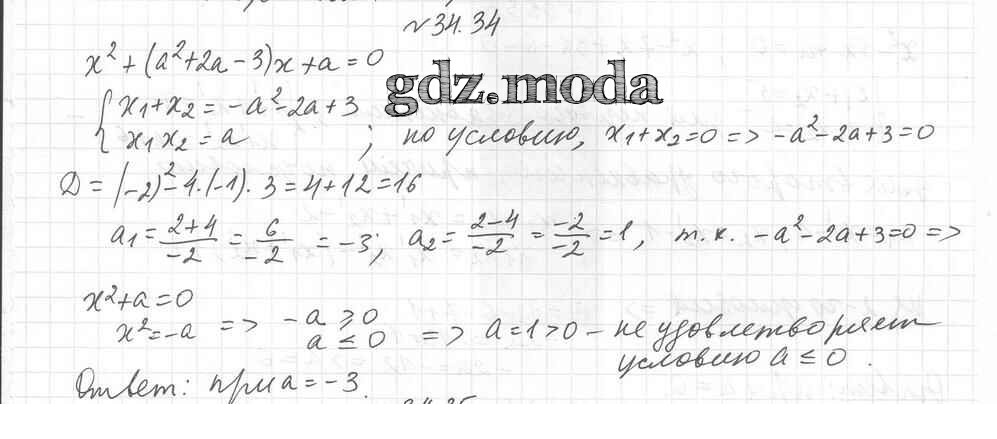 №34.34
x²+(a²+2a-3)x+a=0
gdz.moda
{x₁+x₂=-a²-2a+3
x₁x₂=a ; по условию, x₁+x₂=0=>-a²-2a+3=0
D=(-2)²-4·(-1)·3=4+12=16
a₁=(2+4)/(-2)=6/(-2)=-3; a₂=(2-4)/(-2)=(-2)/(-2)=1, т.к. -a²-2a+3=0=>
x²+a=0
x²=-a => -a≥0
a≤0 => a=1>0 - не удовлетворяет
условию a≤0.
Ответ: при a=-3.